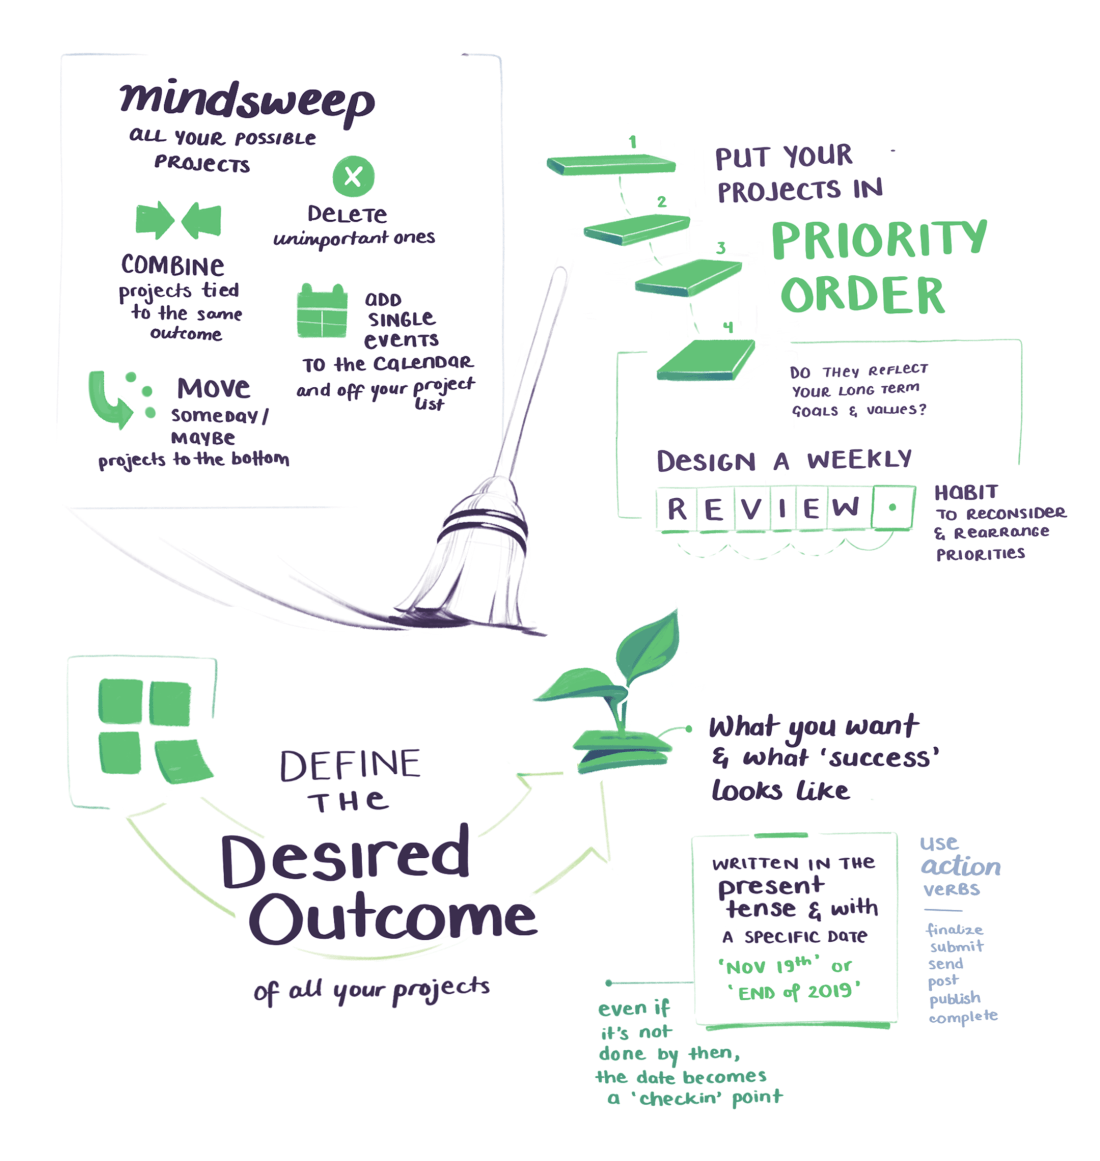 mindsweep
ALL YOUR POSSIBLE
PROJECTS
X
DELETE
unimportant ones
COMBINE
projects tied
to the same
outcome
ADD
SINGLE
EVENTS
TO the CALENDAR
and off your project
list
MOVE
SOMEDAY/
MAYBE
projects to the bottom
1
2
3
4
PUT YOUR
PROJECTS IN
PRIORITY
ORDER
DO THEY REFLECT
YOUR LONG TERM
GOALS & VALUES?
DESIGN A WEEKLY
REVIEW
HABIT
TO RECONSIDER
& REARRANGE
PRIORITIES
DEFINE
THE
Desired
Outcome
of all your projects
What you want
& what 'success'
looks like
WRITTEN IN THE
present
tense & with
A SPECIFIC DATE
'NOV 19th' or
'END of 2019'
use
action
VERBS
finalize
submit
send
post
publish
complete
even if
it's not
done by then,
the date becomes
a 'checkin' point